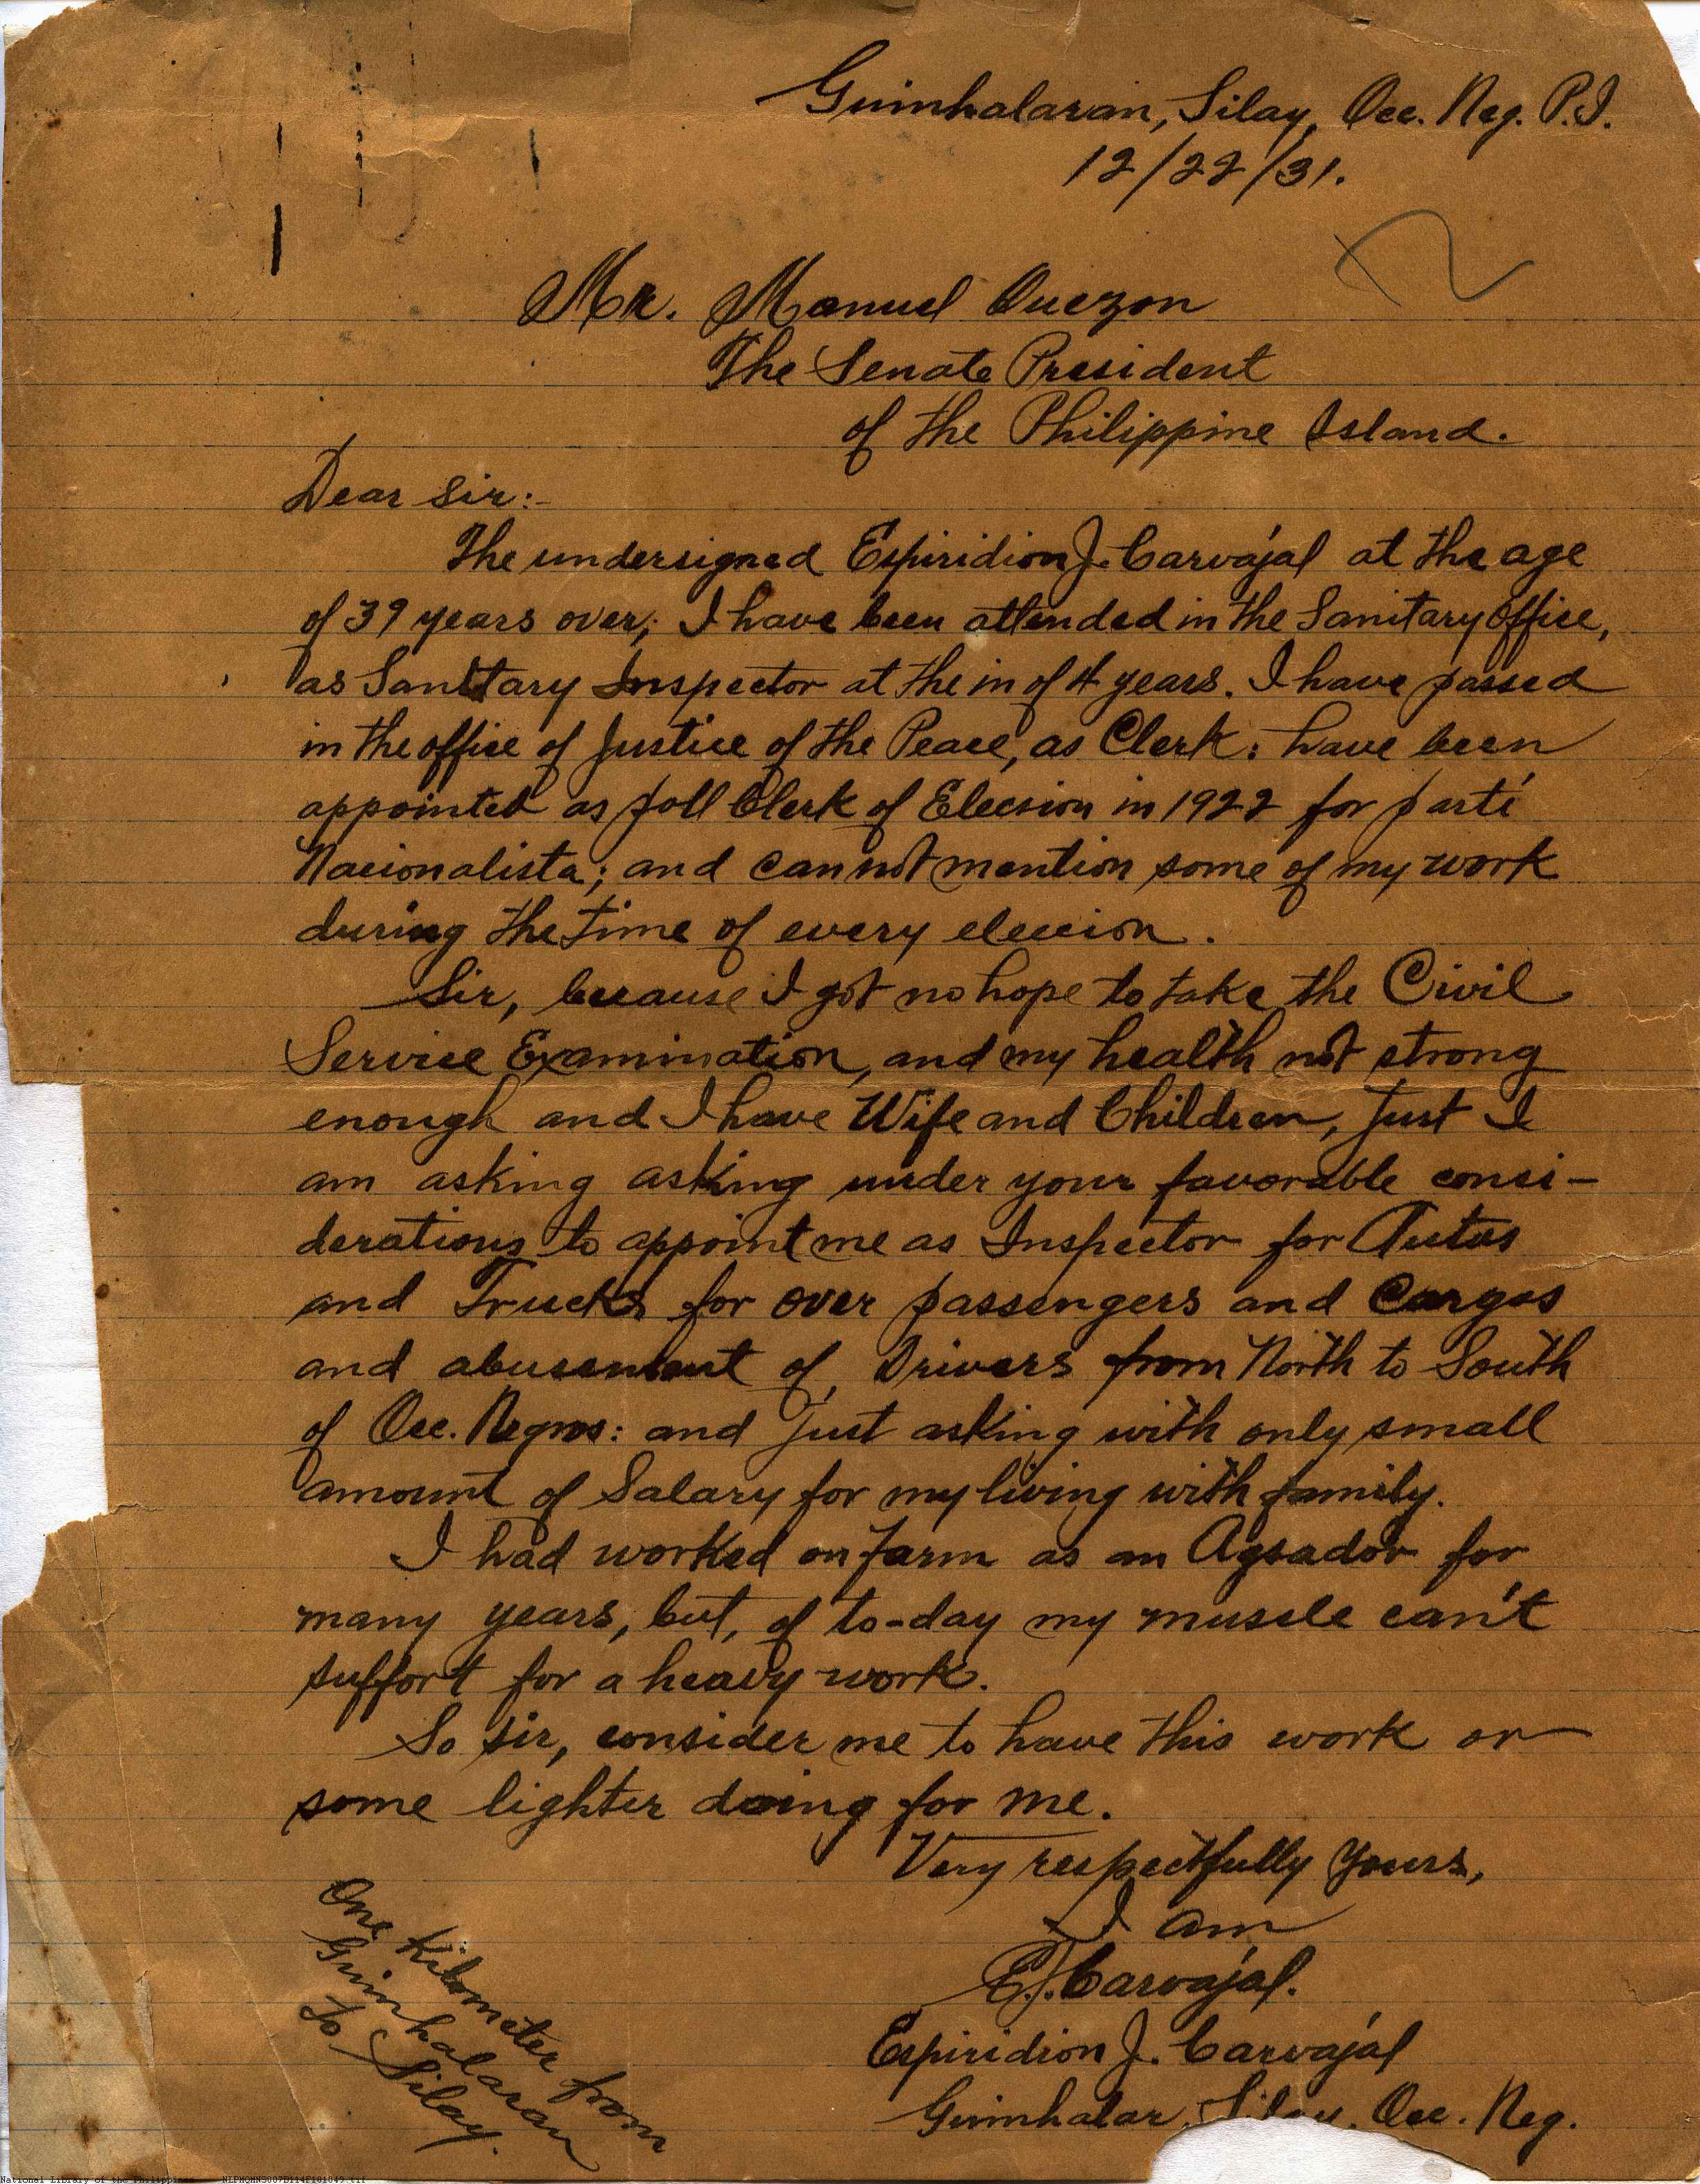 Guinhalaran, Silay, Occ. Neg. P.I.
12/22/31.
Mr. Manuel Quezon
The Senate President
of the Philippine Island.
Dear Sir:-
The undersigned Espiridion J. Carvajal at the age
of 39 years over; I have been attended in the Sanitary Office,
as Sanitary Inspector at the in of 4 years. I have passed
in the office of Justice of the Peace, as Clerk: have been
appointed as poll Clerk of Elecsion in 1922 for parti
Nacionalista; and can not mention some of my work
during the time of every eleccion.
Sir, because I got no hope to take the Civil
Service Examination, and my health not strong
enough and I have Wife and Children, Just I
am asking asking under your favorable consi-
derations to appoint me as Inspector for Autos
and Trucks for over passengers and Cargos
and abusement of Drivers from North to South
of Occ. Negros: and Just asking with only small
amount of Salary for my living with family.
I had worked on farm as an Agsador for
many years, but, of to-day my muscle can't
support for a heavy work.
So sir, consider me to have this work or
some lighter doing for me.
Very respectfully Yours,
I am
E.J. Carvajal.
Espiridion J. Carvajal
Guinhalar Silay, Occ. Neg.
One kilometer from
Guinhalaran
To Silay.
National Library of the Philippines